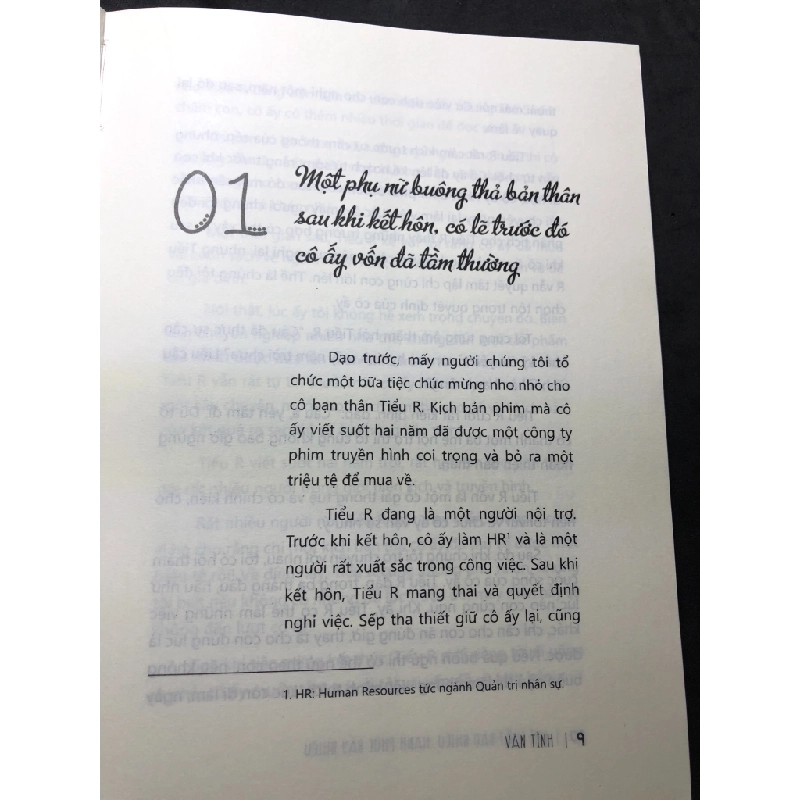 01
Một phụ nữ buông thả bản thân
sau khi kết hôn, có lẽ trước đó
cô ấy vốn đã tầm thường
Dạo trước, mấy người chúng tôi tổ
chức một bữa tiệc chúc mừng nho nhỏ cho
cô bạn thân Tiểu R. Kịch bản phim mà cô
ấy viết suốt hai năm đã được một công ty
phim truyền hình coi trọng và bỏ ra một
triệu tệ để mua về.
Tiểu R đang là một người nội trợ.
Trước khi kết hôn, cô ấy làm HR¹ và là một
người rất xuất sắc trong công việc. Sau khi
kết hôn, Tiểu R mang thai và quyết định
nghỉ việc. Sếp tha thiết giữ cô ấy lại, cũng
1. HR: Human Resources tức ngành Quản trị nhân sự.
VÃN TÌNH | 9